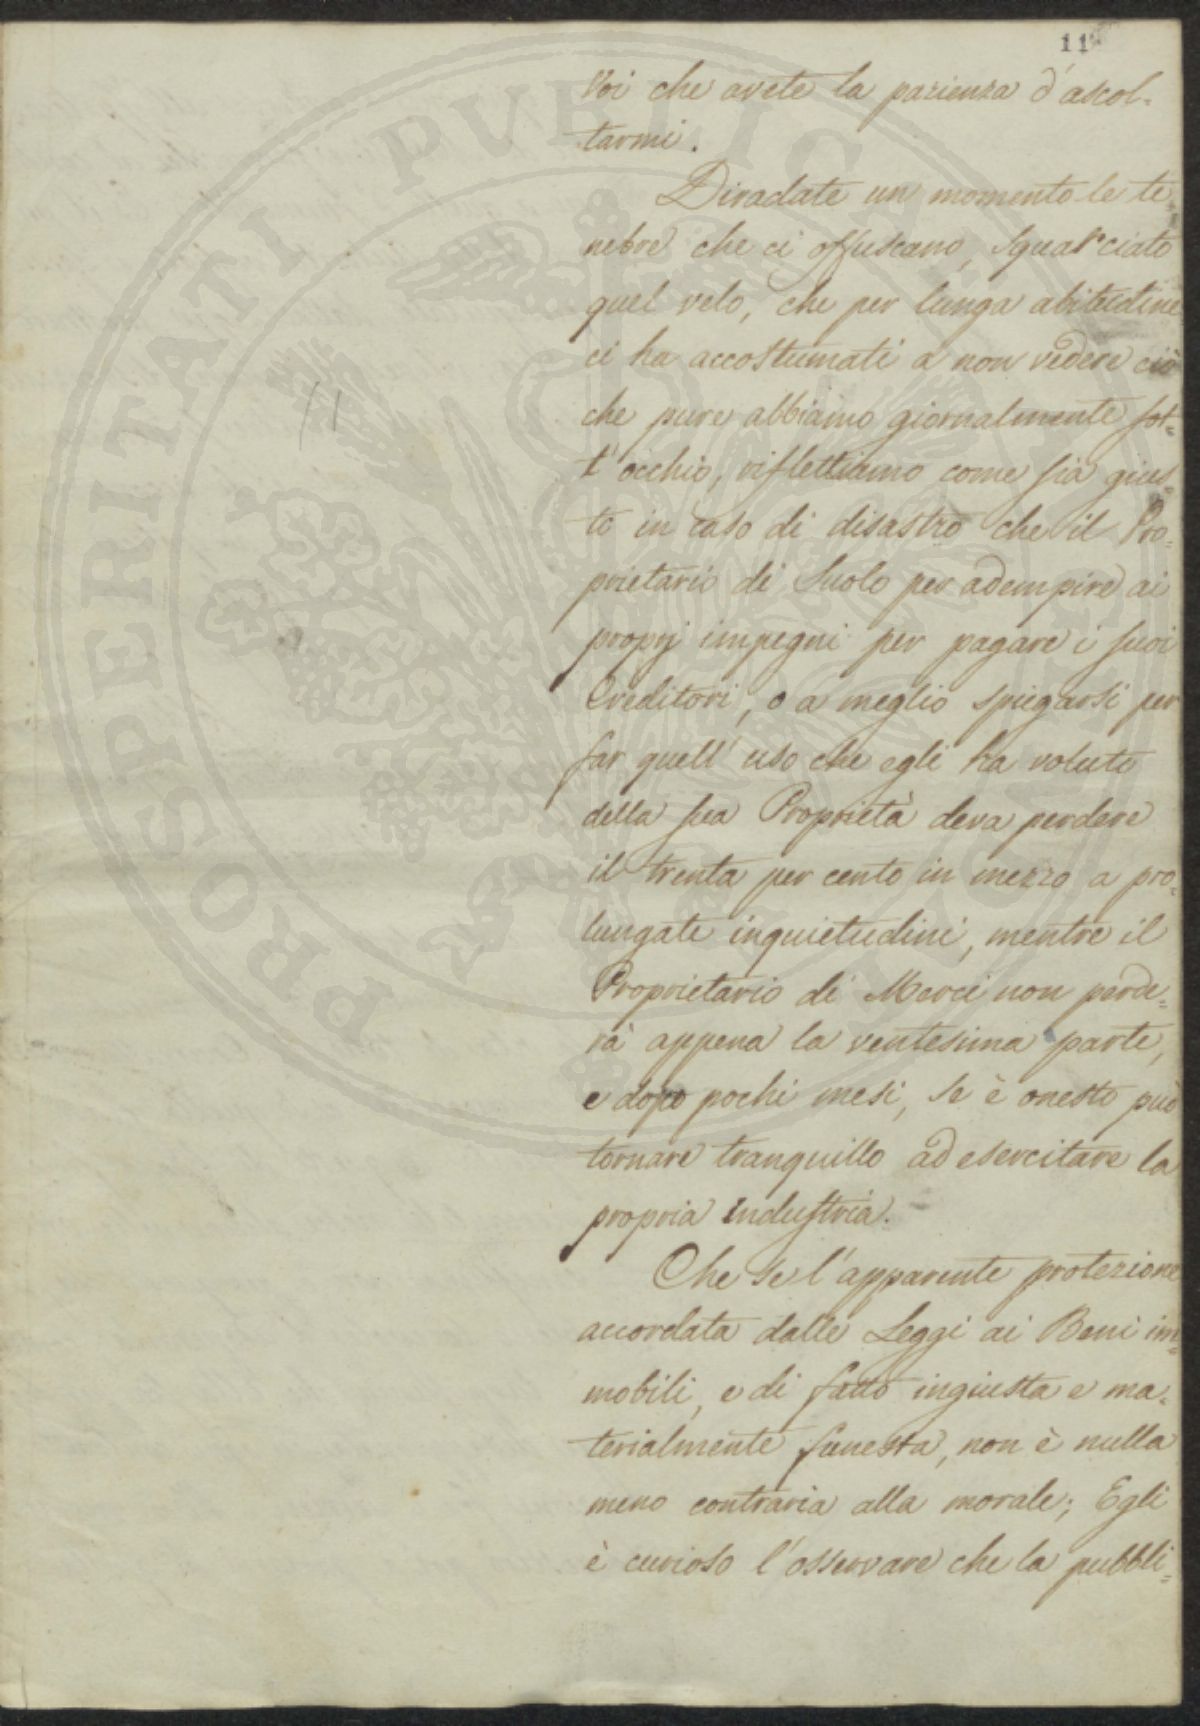 11
Voi che avete la pazienza d'ascol-
tarmi.
Diradate un momento le te=
nebre che ci offuscano, squarciato
quel velo, che per lunga abitudine
ci ha accostumati a non vedere ciò
che pure abbiamo giornalmente sot=
t'occhio, riflettiamo come sia gius=
to in caso di disastro che il Pro=
prietario di Suolo per adempire ai
proprj impegni per pagare i suoi
Creditori, o a meglio spiegarsi per
far quell'uso che egli ha voluto
della sua Proprietà deva perdere
il trenta per cento in mezzo a pro=
lungate inquietudini, mentre il
Proprietario di Merci non perde=
rà appena la ventesima parte,
e dopo pochi mesi, se è onesto può
tornare tranquillo ad esercitare la
propria industria.
Che se l'apparente protezione
accordata dalle Leggi ai Beni im=
mobili, e di fatto ingiusta e ma=
terialmente funesta, non è nulla
meno contraria alla morale; Egli
è curioso l'osservare che la pubbli=
11
PROSPERITATI PUBLICAE